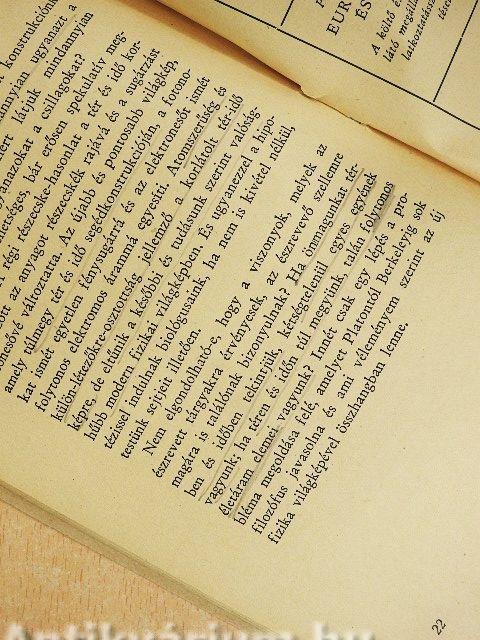 konstrukciónk
annyian ugyanazt a
ért látjuk mindannyian
gyanazokat a csillagokat?
hetséges, bár erősen spekulatív meg-
régi részecske-hasonlat a tér és idő kor-
ott az anyagot részecskék rajává és a sugárzást
változtatta. Az újabb és pontosabb világkép,
amely túlmegy tér és idő segédkonstrukcióján, a fotono-
kat ismét egyetlen fénysugárrá és az elektronesőt ismét
folyonos elektromos árammá egyesíti. Atomszerűség és
külön-létezőkre-osztottság jellemző a korlátok tér-idő
képre, de eltűnik a későbbi és tudásunk szerint valóság-
hűbb modern fizikai világképben. És ugyanezzel a hipo-
tézissel indulnak biológusaink, ha nem is kivétel nélkül,
testünk sejtjeit illetően.
Nem elgondolható-e, hogy a viszonyok, melyek az
észrevett tárgyakra érvényesek, az észrevevő szellemre
magára is találónak bizonyulnak? Ha önmagunkat tér-
ben és időben tekintjük, kétségtelenül egyes egyének
vagyunk; ha téren és időn túl megyünk, után folyonos
életáram elemei vagyunk? Innét csak egy lépés a pro-
bléma megoldása felé, amelyet Platontól Berkeleyig sok
filozófus javasolna és ami véleményem szerint az új
fizika világképével összhangban lenne.
22
EUR
ÉS
A költő é
látó megáll
latkoztatáss
tései
Antikvárium.hu